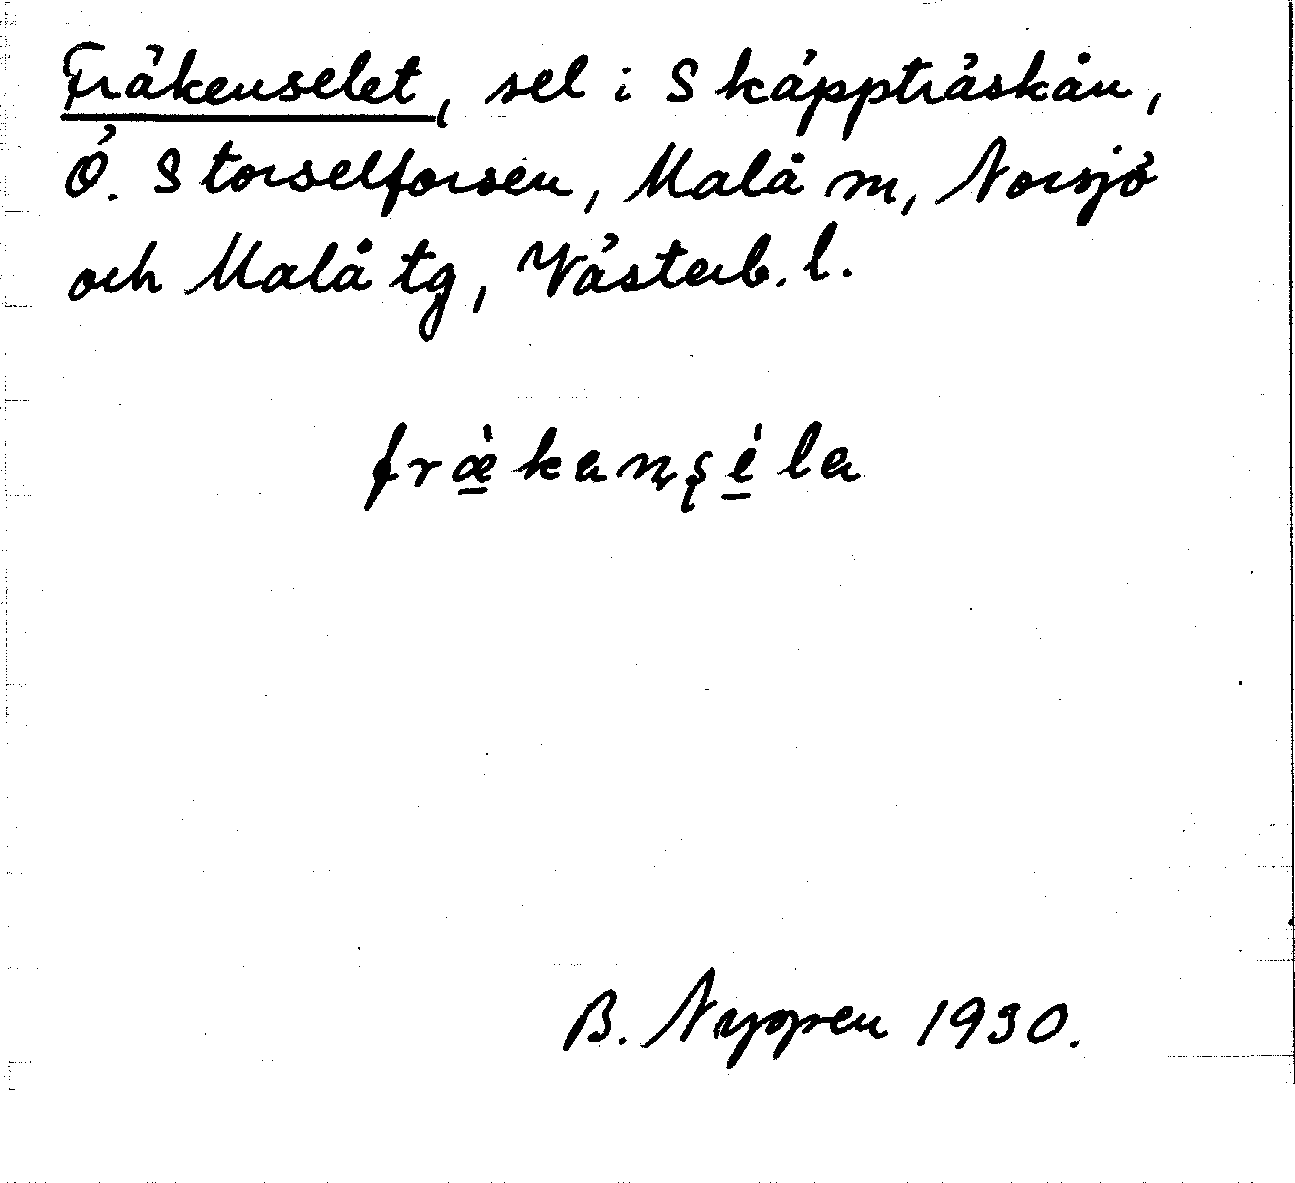 Fräkenselet, sel i Skäppträskån,
Ö. Storselforsen, Malå m, Norsjö
och Malå tg, Västerb. l.
fræ̀kanséla
B. Nygren 1930.